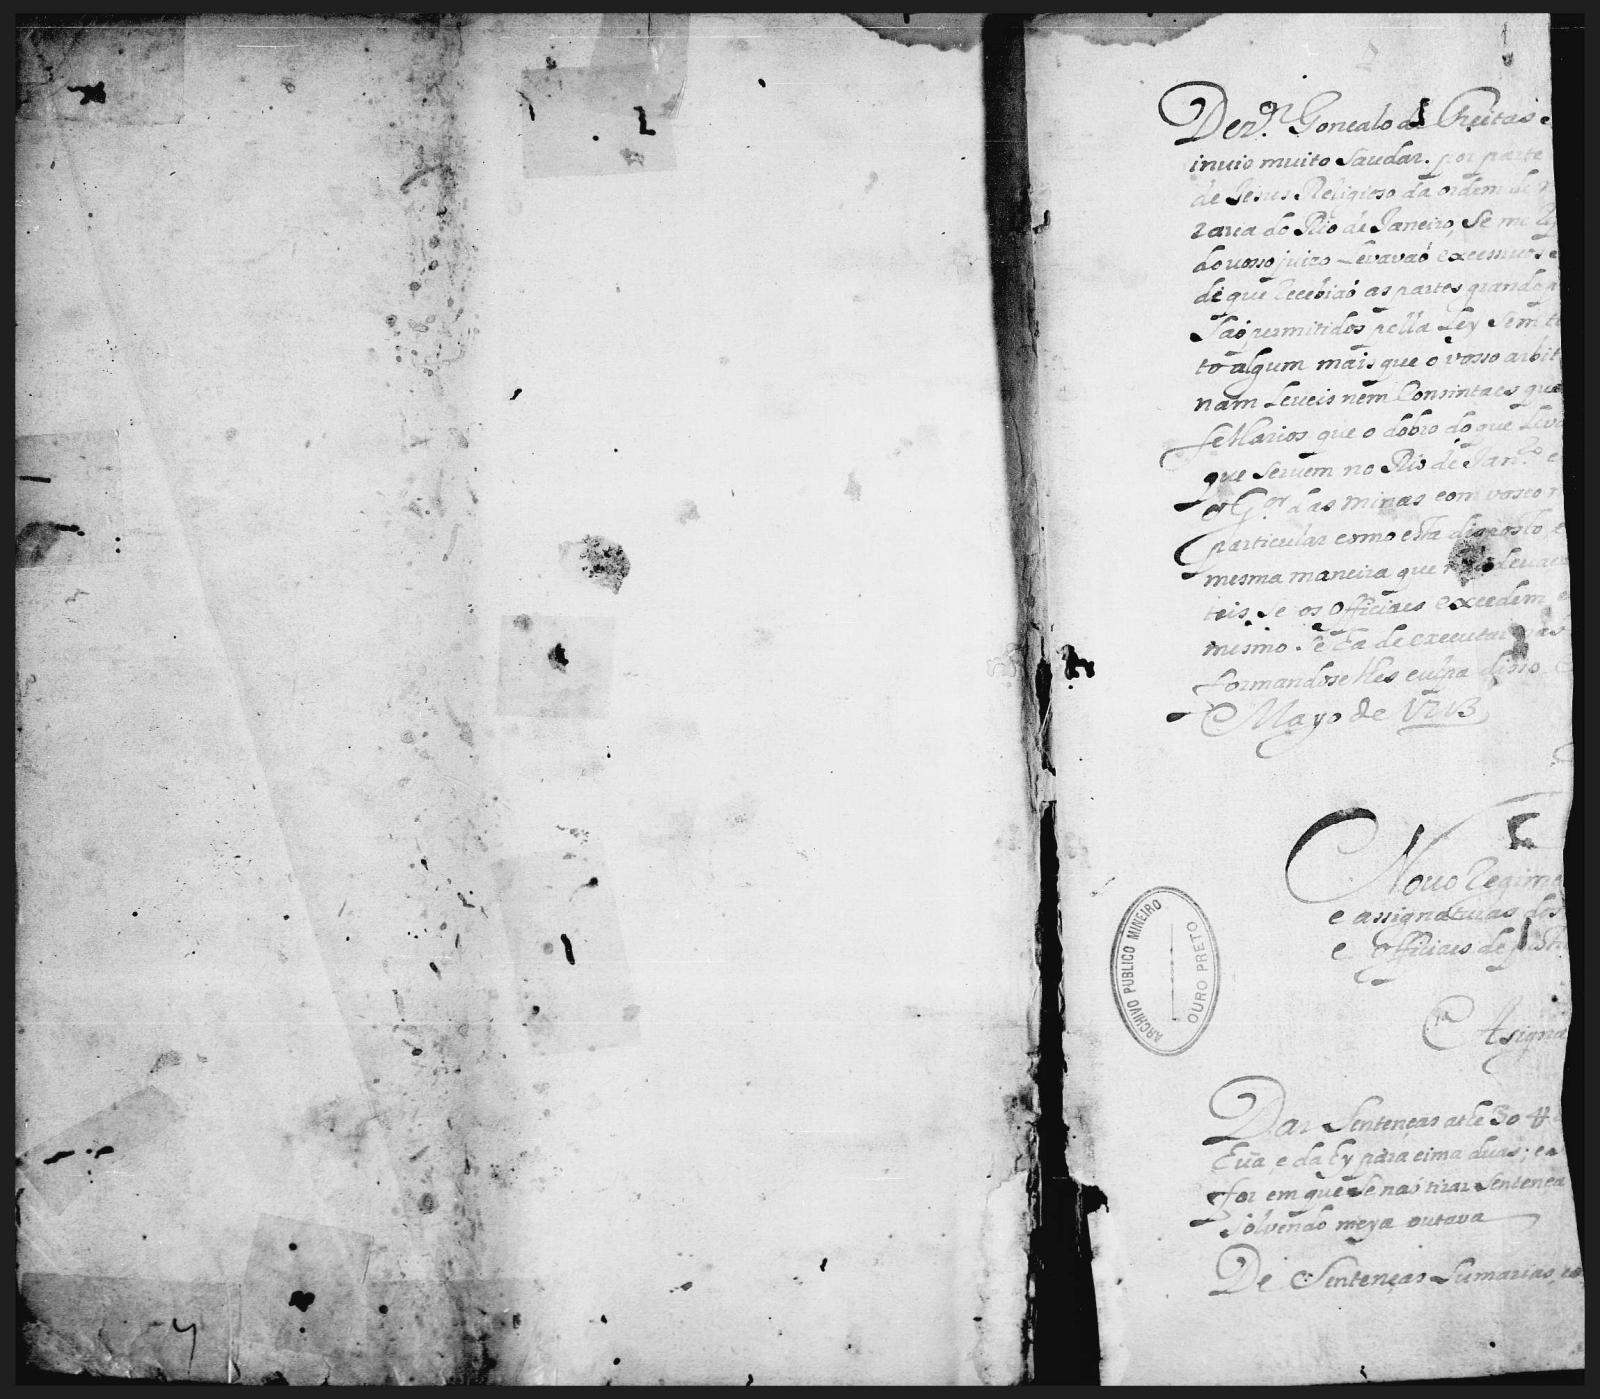 Dez.or Goncalo de Freitas
inuio muito Saudar. por parte
de Jesus Religioso da ordem de
raria do Rio de Janeiro, Se me
do uosso juizo Levavaõ excessiuos
de que Recebiaõ as partes grande
Saõ permitidos pella Ley Sem
to algum mais que o vosso arbit
nam Leueis nem Consintaes que
sellarios que o dobro do que Leva
que Seruem no Rio de Jan.ro e
G.or das minas com vosco
particular como esta disposto
mesma maneira que
teis, Se os Officiaes excedem
mismo. e ha de executar
formandose lhes culpa disso
Mayo de 1713
Nouo Regime
e assignaturas dos
e Officiaes de justi
Asigna
Dar Sentenças athe 30
huã e dahy para cima duas; e
for em que Se naõ tirar Sentença
Solvendo meya outava
De Sentenças Sumarias
ARCHIVO PUBLICO MINEIRO
OURO PRETO